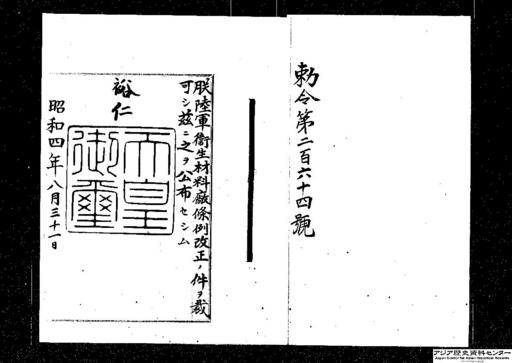 勅令第二百六十四號
朕陸軍衞生材料廠條例改正ノ件ヲ裁
可シ茲ニ之ヲ公布セシム
裕仁
天皇
御璽
昭和四年八月三十一日
アジア歴史資料センター
Japan Center for Asian Historical Records